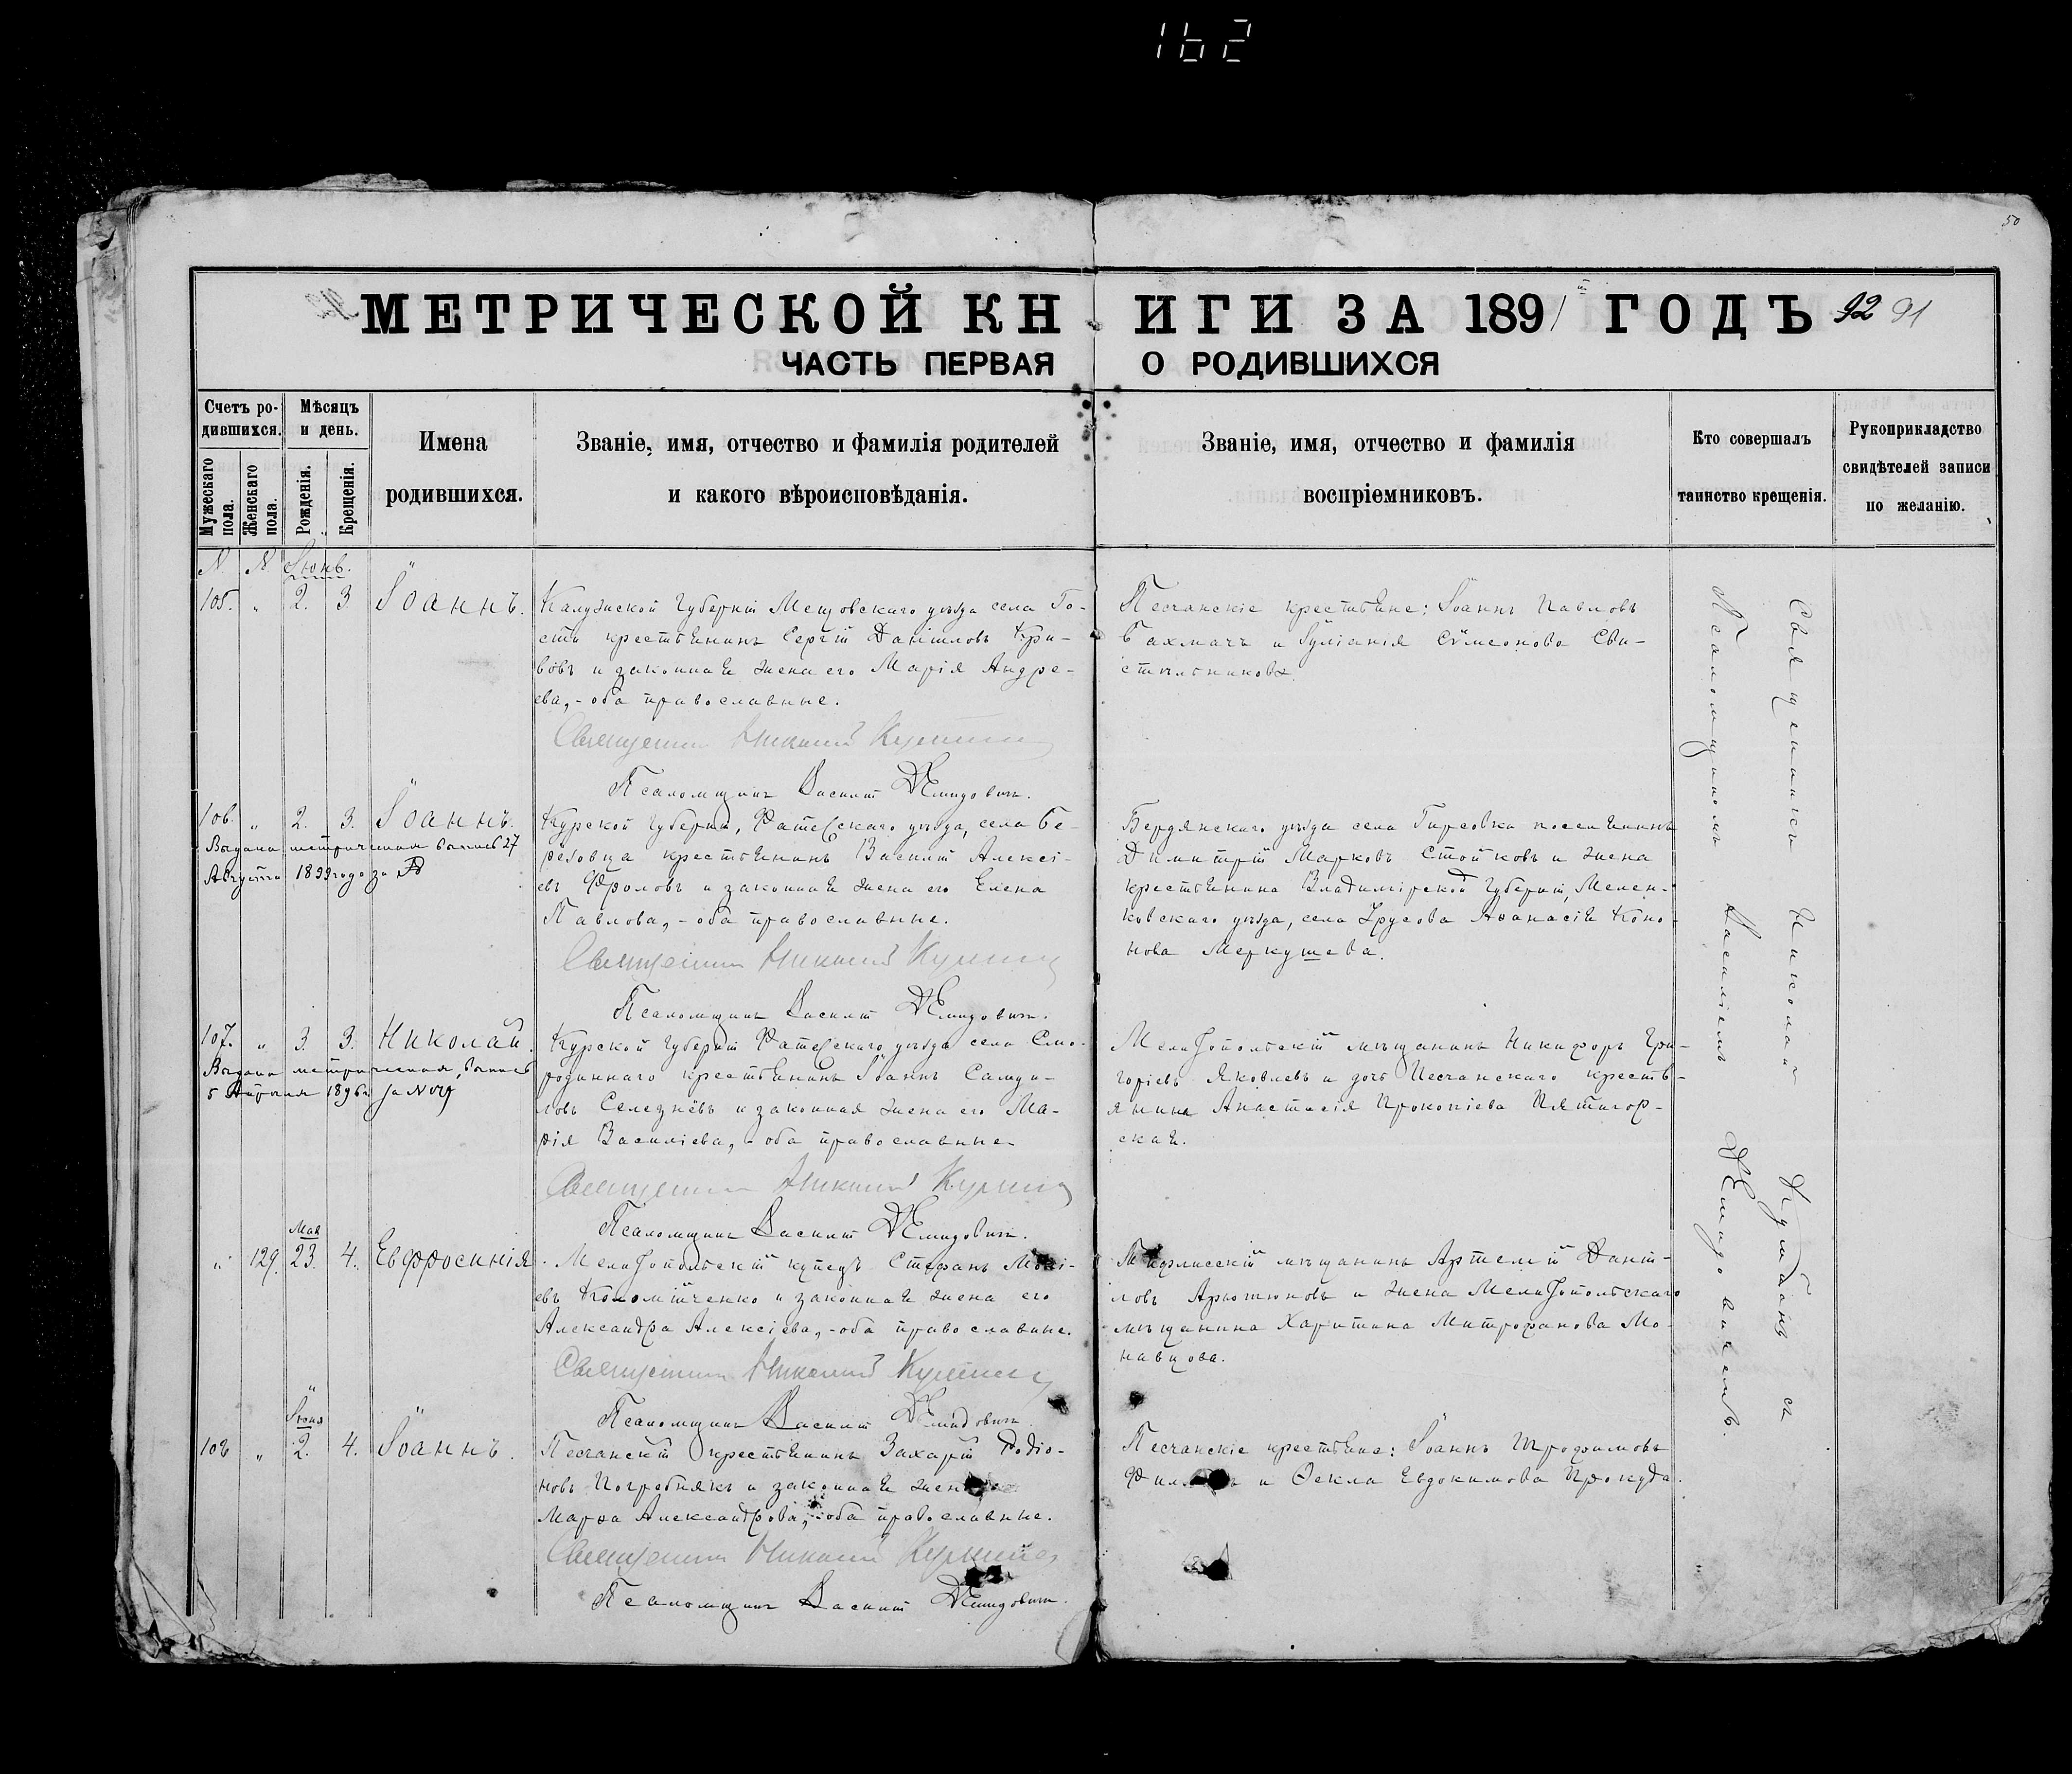 162
50
МЕТРИЧЕСКОЙ КНИГИ ЗА 1891 ГОДЪ 92 91
ЧАСТЬ ПЕРВАЯ О РОДИВШИХСЯ
Счетъ родившихся.
Мужескаго пола.
Женскаго пола.
Мѣсяцъ и день.
Рожденія.
Крещенія.
Имена
родившихся.
Званіе, имя, отчество и фамилія родителей
и какого вѣроисповѣданія.
Званіе, имя, отчество и фамилія
воспріемниковъ.
Кто совершалъ
таинство крещенія.
Рукоприкладство
свидѣтелей записи
по желанію.
N. N. Іюнь.
105. „ 2. 3. Іоаннъ.
Калужской Губерніи Мещовскаго уѣзда села Го-
сти крестьянинъ Сергій Даніиловъ Кри-
вовъ и законная жена его Марія Андре-
ева, - оба православные.
Священникъ Николай
Псаломщикъ Василій Демидовичъ.
Песчанскіе крестьяне: Іоаннъ Павловъ
Бахмачъ и Іуліанія Сѵмеонова Сви-
стѣльникова.
106. „ 2. 3. Іоаннъ.
Выдана метрическая выпись 27
Августа 1899 года за №
Курской Губерніи, Фатежскаго уѣзда, села Бе-
резовца крестьянинъ Василій Алексі-
евъ Фроловъ и законная жена его Елена
Павлова, - оба православные.
Священникъ Николай
Псаломщикъ Василій Демидовичъ.
Бердянскаго уѣзда села Гирсовка поселянинъ
Димитрій Марковъ Стойковъ и жена
крестьянина Владимірской Губерніи, Мелен-
ковскаго уѣзда, села Урусова Аѳанасія Коно-
нова Меркушева.
107. „ 3. 3. Николай.
Выдана метрическая выпись
5 Апрѣля 1896 г. за №
Курской Губерніи Фатежскаго уѣзда села Смо-
родиннаго крестьянинъ Іоаннъ Самуи-
ловъ Селезнёвъ и законная жена его Ма-
рія Василіева, - оба православные.
Священникъ Николай
Псаломщикъ Василій Демидовичъ.
Мелитопольскій мѣщанинъ Никифоръ Гри-
горіевъ Яковлевъ и дочь Песчанскаго кресть-
янина Анастасія Прокопіева Пятигор-
ская.
Мая
„ 129. 23. 4. Евфросинія.
Мелитопольскій купецъ Стефанъ
евъ Коломійченко и законная жена его
Александра Алексіева, - оба православные.
Священникъ Николай
Псаломщикъ Василій Демидовичъ.
Тифлисскій мѣщанинъ Артемій Даніи-
ловъ Арютюновъ и жена Мелитопольскаго
мѣщанина Харитина Митрофанова Мо-
навцова.
Іюня
108 „ 2. 4. Іоаннъ.
Песчанскій крестьянинъ Захарій Родіо-
новъ Погребнякъ и законная жена
Марѳа Александрова, - оба православные.
Священникъ Николай
Псаломщикъ Василій Демидовичъ.
Песчанскіе крестьяне: Іоаннъ Трофимовъ
и Ѳекла Евдокимова Прокуда.
Священникъ Николай съ
Псаломщикомъ Василіемъ Демидовичемъ.